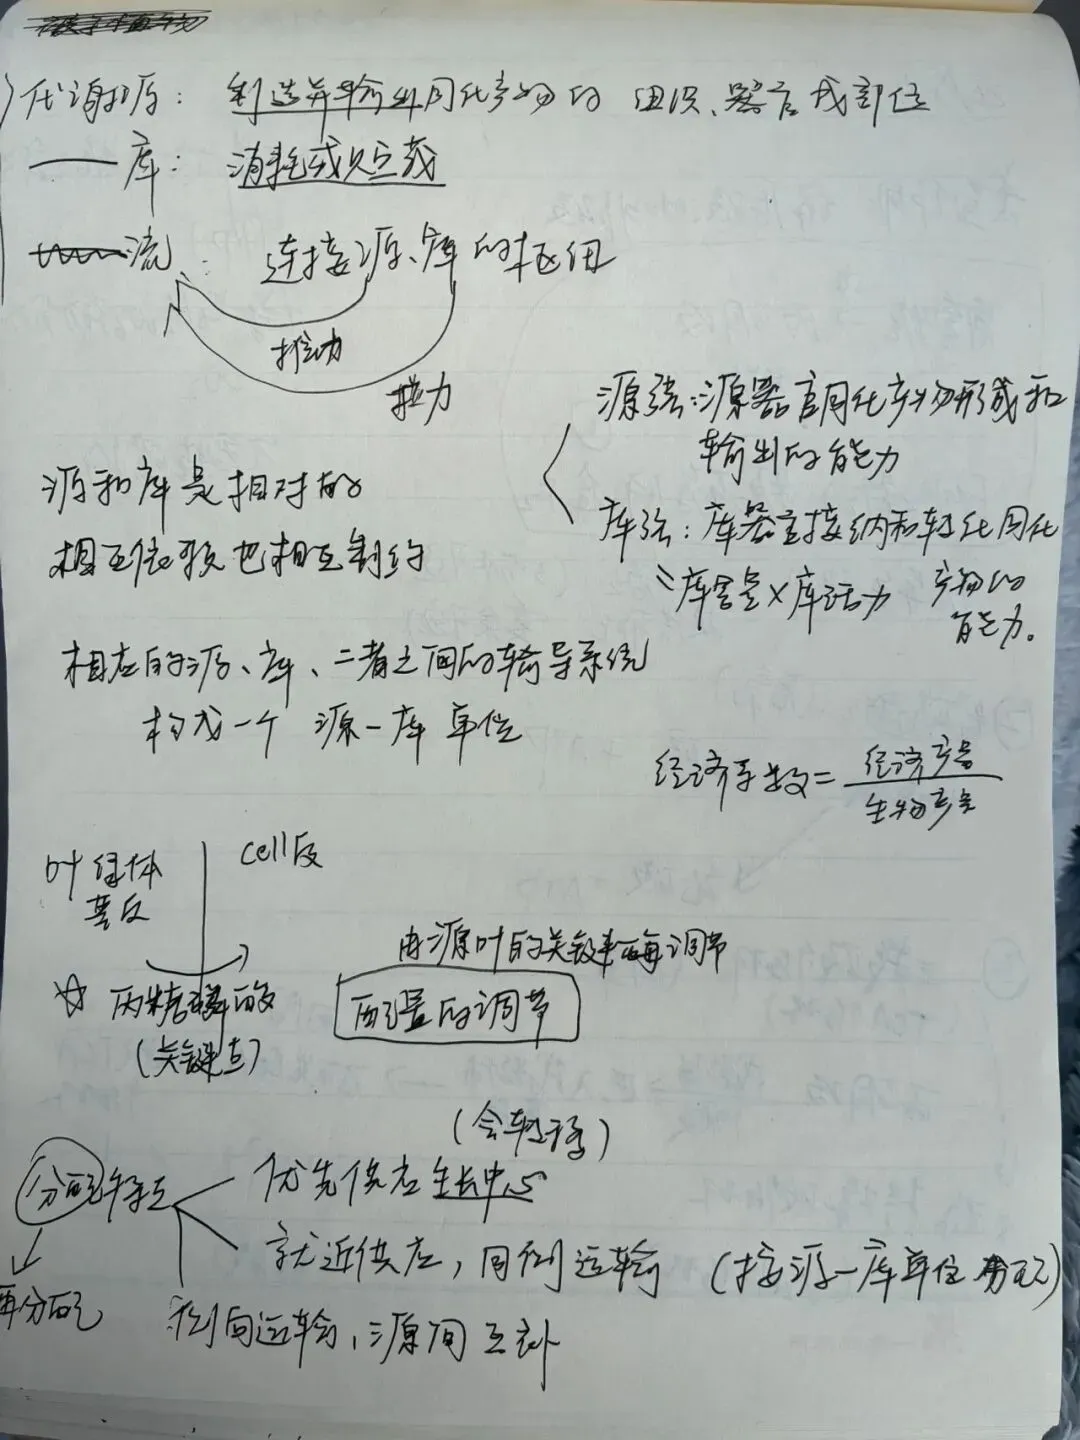 代谢源：制造并输出同化产物的组织、器官或部位
——库：消耗或贮藏
流：连接源、库的枢纽
推动
拉力
源强：源器官同化产物形成和
输出的能力
库强：库器官接纳和转化同化
产物的
能力。
库容量×库活力
源和库是相对的
相互依赖也相互制约
相应的源、库、二者之间的输导系统
构成一个 源—库单位
经济系数=经济产量
生物产量
叶绿体
基质
cell质
丙糖磷酸
(关键点)
由源叶的关键酶调节
配置的调节
(会转移)
分配特点
优先供应生长中心
就近供应，同侧运输 (按源—库单位分配)
再分配
侧向运输，源间互补